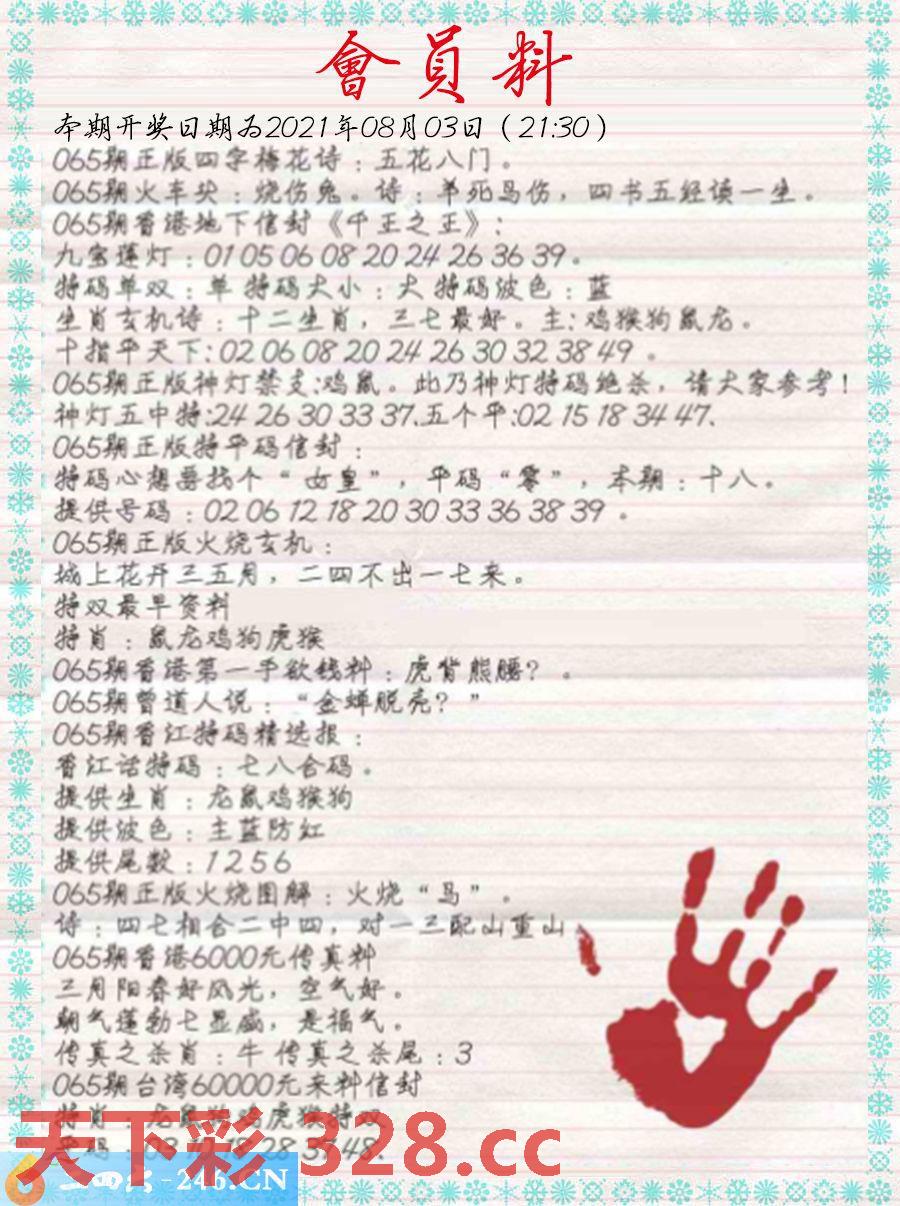 會員料
本期开奖日期为2021年08月03日（21:30）
065期正版四字梅花诗：五花八门。
065期火车头：烧伤兔。诗：羊死马伤，四书五经读一生。
065期香港地下信封《千王之王》：
九宝莲灯：01 05 06 08 20 24 26 36 39。
特码单双：单 特码大小：大 特码波色：蓝
生肖玄机诗：十二生肖，三七最好。主：鸡猴狗鼠龙。
十指平天下：02 06 08 20 24 26 30 32 38 49 。
065期正版神灯禁支:鸡鼠。此乃神灯特码绝杀，请大家参考！
神灯五中特:24 26 30 33 37.五个平:02 15 18 34 47.
065期正版特平码信封：
特码心想要找个“女皇”，平码“零”，本期：十八。
提供号码：02 06 12 18 20 30 33 36 38 39 。
065期正版火烧玄机：
城上花开三五月，二四不出一七来。
特双最早资料
特肖：鼠龙鸡狗虎猴
065期香港第一手欲钱料：虎背熊腰？。
065期曾道人说：“金蝉脱壳？”
065期香江特码精选报：
香江话特码：七八合码。
提供生肖：龙鼠鸡猴狗
提供波色：主蓝防红
提供尾数：1 2 5 6
065期正版火烧图解：火烧“马”。
诗：四七相合二中四，对一三配山重山
065期香港6000元传真料
三月阳春好风光，空气好。
朝气蓬勃七显威，是福气。
传真之杀肖：牛 传真之杀尾：3
065期台湾60000元来料信封
特肖：龙鼠狗鸡虎猴特双
天下彩 328.cc
二四六-246.CN